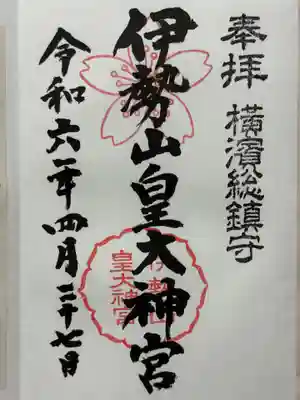 奉拝 横濱総鎮守
伊勢山皇大神宮
伊勢山
皇大神宮
令和六年四月二十七日